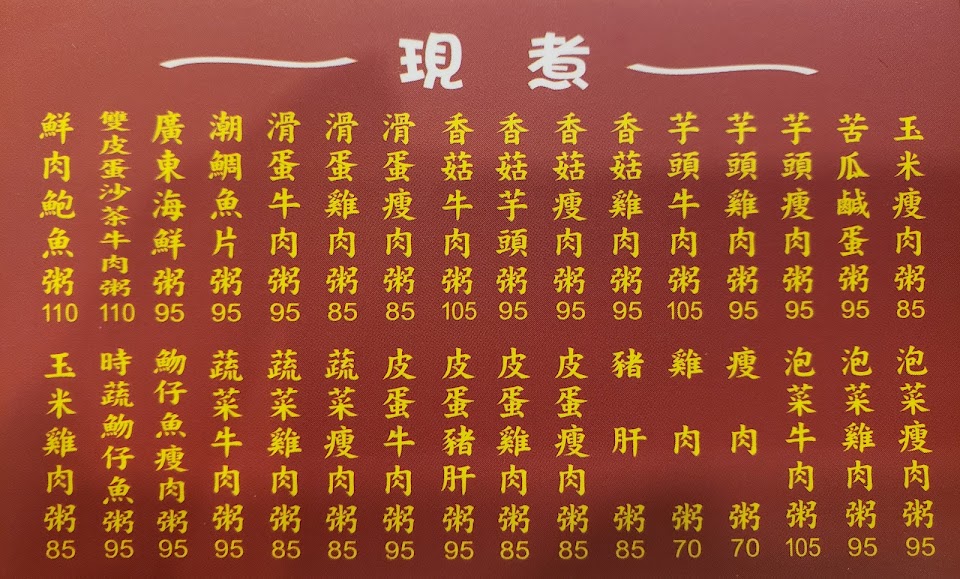 現煮
玉米瘦肉粥 85
苦瓜鹹蛋粥 95
芋頭瘦肉粥 95
芋頭雞肉粥 95
芋頭牛肉粥 105
香菇雞肉粥 95
香菇瘦肉粥 95
香菇芋頭粥 95
香菇牛肉粥 105
滑蛋瘦肉粥 85
滑蛋雞肉粥 85
滑蛋牛肉粥 95
潮鯛魚片粥 95
廣東海鮮粥 95
雙皮蛋沙茶牛肉粥 110
鮮肉鮑魚粥 110
泡菜瘦肉粥 95
泡菜雞肉粥 95
泡菜牛肉粥 105
瘦肉粥 70
雞肉粥 70
豬肝粥 85
皮蛋瘦肉粥 85
皮蛋雞肉粥 85
皮蛋豬肝粥 95
皮蛋牛肉粥 95
蔬菜瘦肉粥 85
蔬菜雞肉粥 85
蔬菜牛肉粥 95
魩仔魚瘦肉粥 95
時蔬魩仔魚粥 95
玉米雞肉粥 85